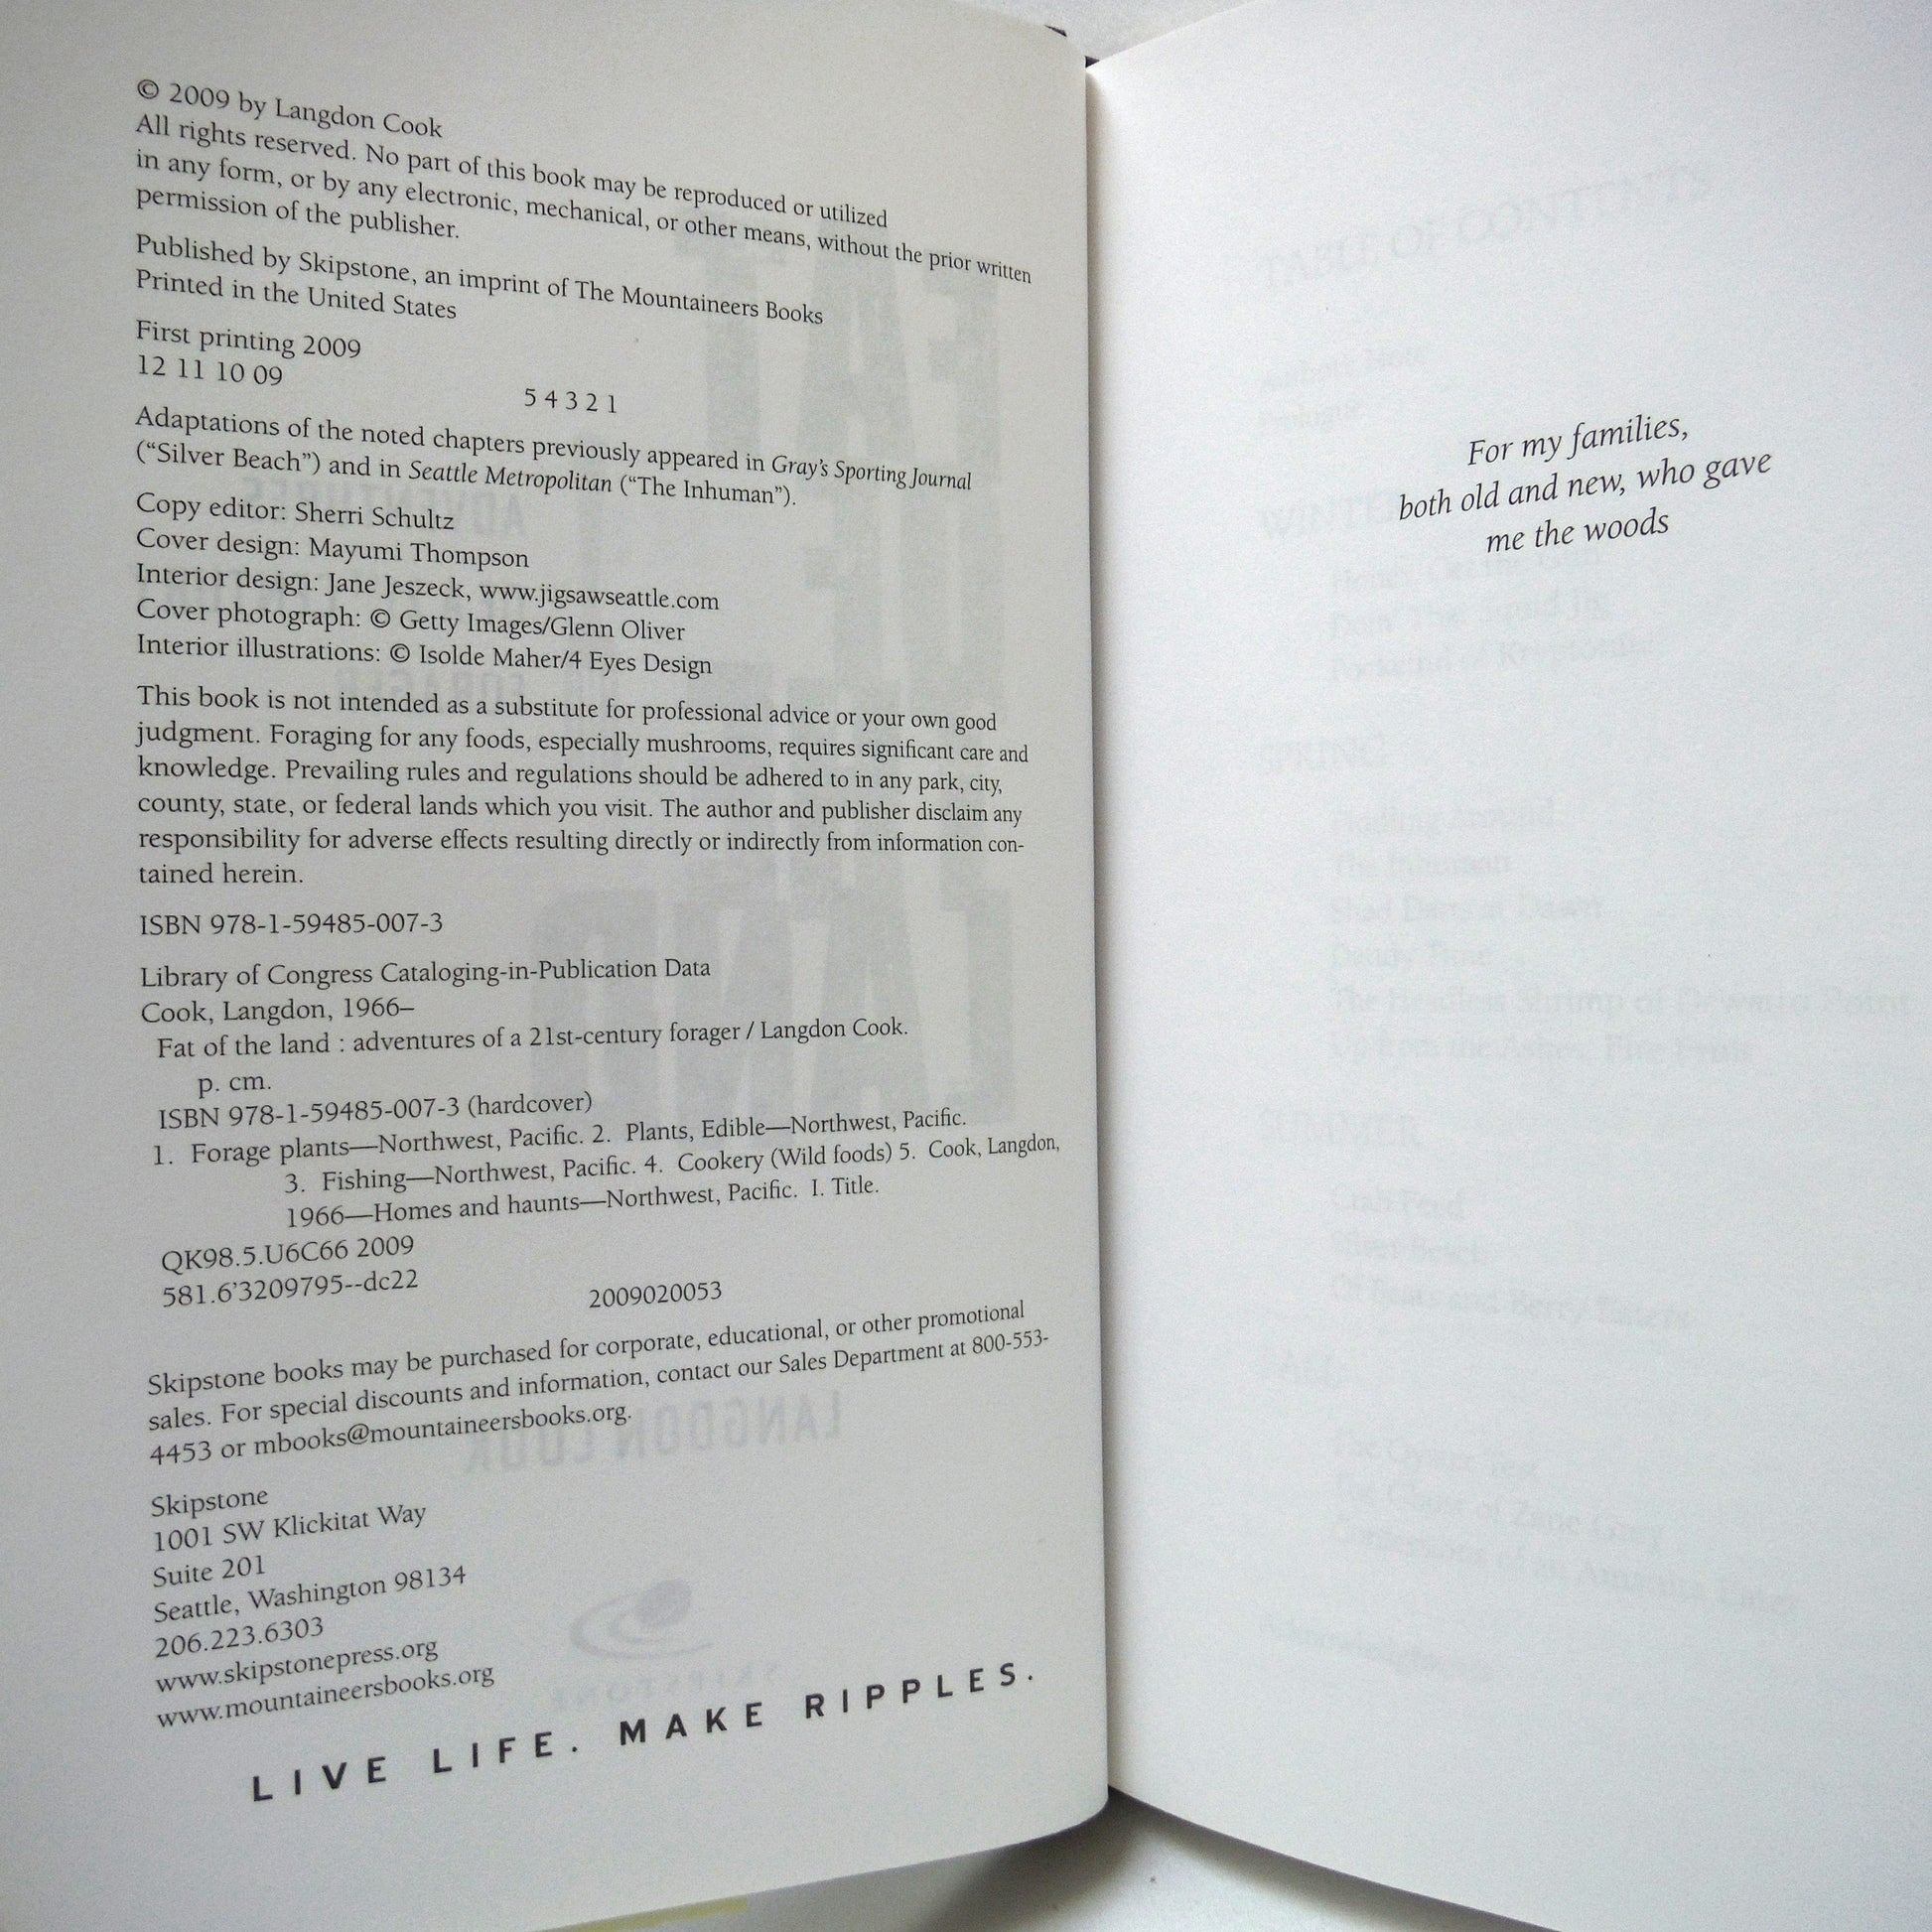 © 2009 by Langdon Cook
All rights reserved. No part of this book may be reproduced or utilized
in any form, or by any electronic, mechanical, or other means, without the prior written
permission of the publisher.
Published by Skipstone, an imprint of The Mountaineers Books
Printed in the United States
First printing 2009
12 11 10 09
5 4 3 2 1
Adaptations of the noted chapters previously appeared in Gray's Sporting Journal
(“Silver Beach”) and in Seattle Metropolitan (“The Inhuman”).
Copy editor: Sherri Schultz
Cover design: Mayumi Thompson
Interior design: Jane Jeszeck, www.jigsawseattle.com
Cover photograph: © Getty Images/Glenn Oliver
Interior illustrations: © Isolde Maher/4 Eyes Design
This book is not intended as a substitute for professional advice or your own good
judgment. Foraging for any foods, especially mushrooms, requires significant care and
knowledge. Prevailing rules and regulations should be adhered to in any park, city,
county, state, or federal lands which you visit. The author and publisher disclaim any
responsibility for adverse effects resulting directly or indirectly from information con-
tained herein.
ISBN 978-1-59485-007-3
Library of Congress Cataloging-in-Publication Data
Cook, Langdon, 1966–
Fat of the land : adventures of a 21st-century forager / Langdon Cook.
p. cm.
ISBN 978-1-59485-007-3 (hardcover)
1. Forage plants—Northwest, Pacific. 2. Plants, Edible—Northwest, Pacific.
3. Fishing—Northwest, Pacific. 4. Cookery (Wild foods) 5. Cook, Langdon,
1966—Homes and haunts—Northwest, Pacific. I. Title.
QK98.5.U6C66 2009
581.6’3209795--dc22
2009020053
Skipstone books may be purchased for corporate, educational, or other promotional
sales. For special discounts and information, contact our Sales Department at 800-553-
4453 or mbooks@mountaineersbooks.org.
Skipstone
1001 SW Klickitat Way
Suite 201
Seattle, Washington 98134
206.223.6303
www.skipstonepress.org
www.mountaineersbooks.org
LIVE LIFE. MAKE RIPPLES.
For my families,
both old and new, who gave
me the woods